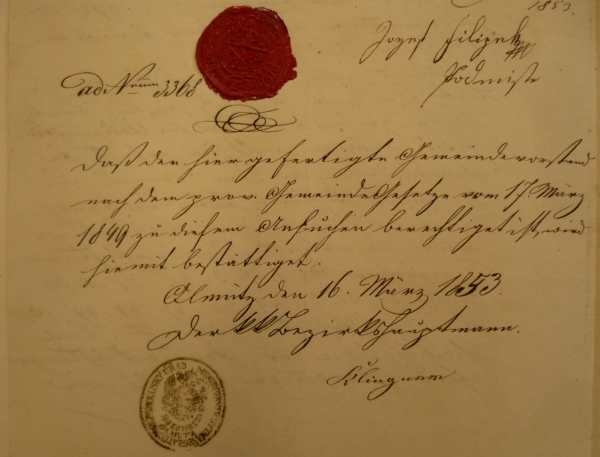 1853.
Jozef Filipek
Podmistr
ad Nrum 3368
Daß der hier gefertigte Gemeindevorstand
nach dem prov. Gemeinde Gesetze vom 17. März
1849 zu diesem Ansuchen berechtiget ist, wird
hiemit bestättiget.
Olmütz den 16. März 1853.
Der kk Bezirkshauptmann.